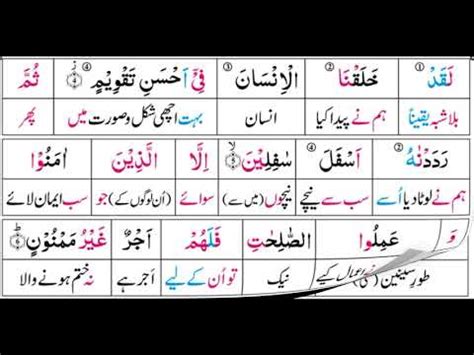 لَقَدْ خَلَقْنَا الْاِنْسَانَ فِیْۤ اَحْسَنِ تَقْوِیْمٍ ثُمَّ
بلاشبہ یقیناً ہم نے پیدا کیا انسان بہت اچھی شکل وصورت میں پھر
رَدَدْنٰهُ اَسْفَلَ سٰفِلِیْنَ اِلَّا الَّذِیْنَ اٰمَنُوْا
ہم نے لوٹا دیا اُسے سب سے نیچے نیچوں (میں سے) سوائے (اُن لوگوں کے) جو سب ایمان لائے
وَ عَمِلُوا الصّٰلِحٰتِ فَلَهُمْ اَجْرٌ غَیْرُ مَمْنُوْنٍ
طورِ سینین اعمال کیے نیک تو اُن کے لیے اجر ہے نہ ختم ہونے والا